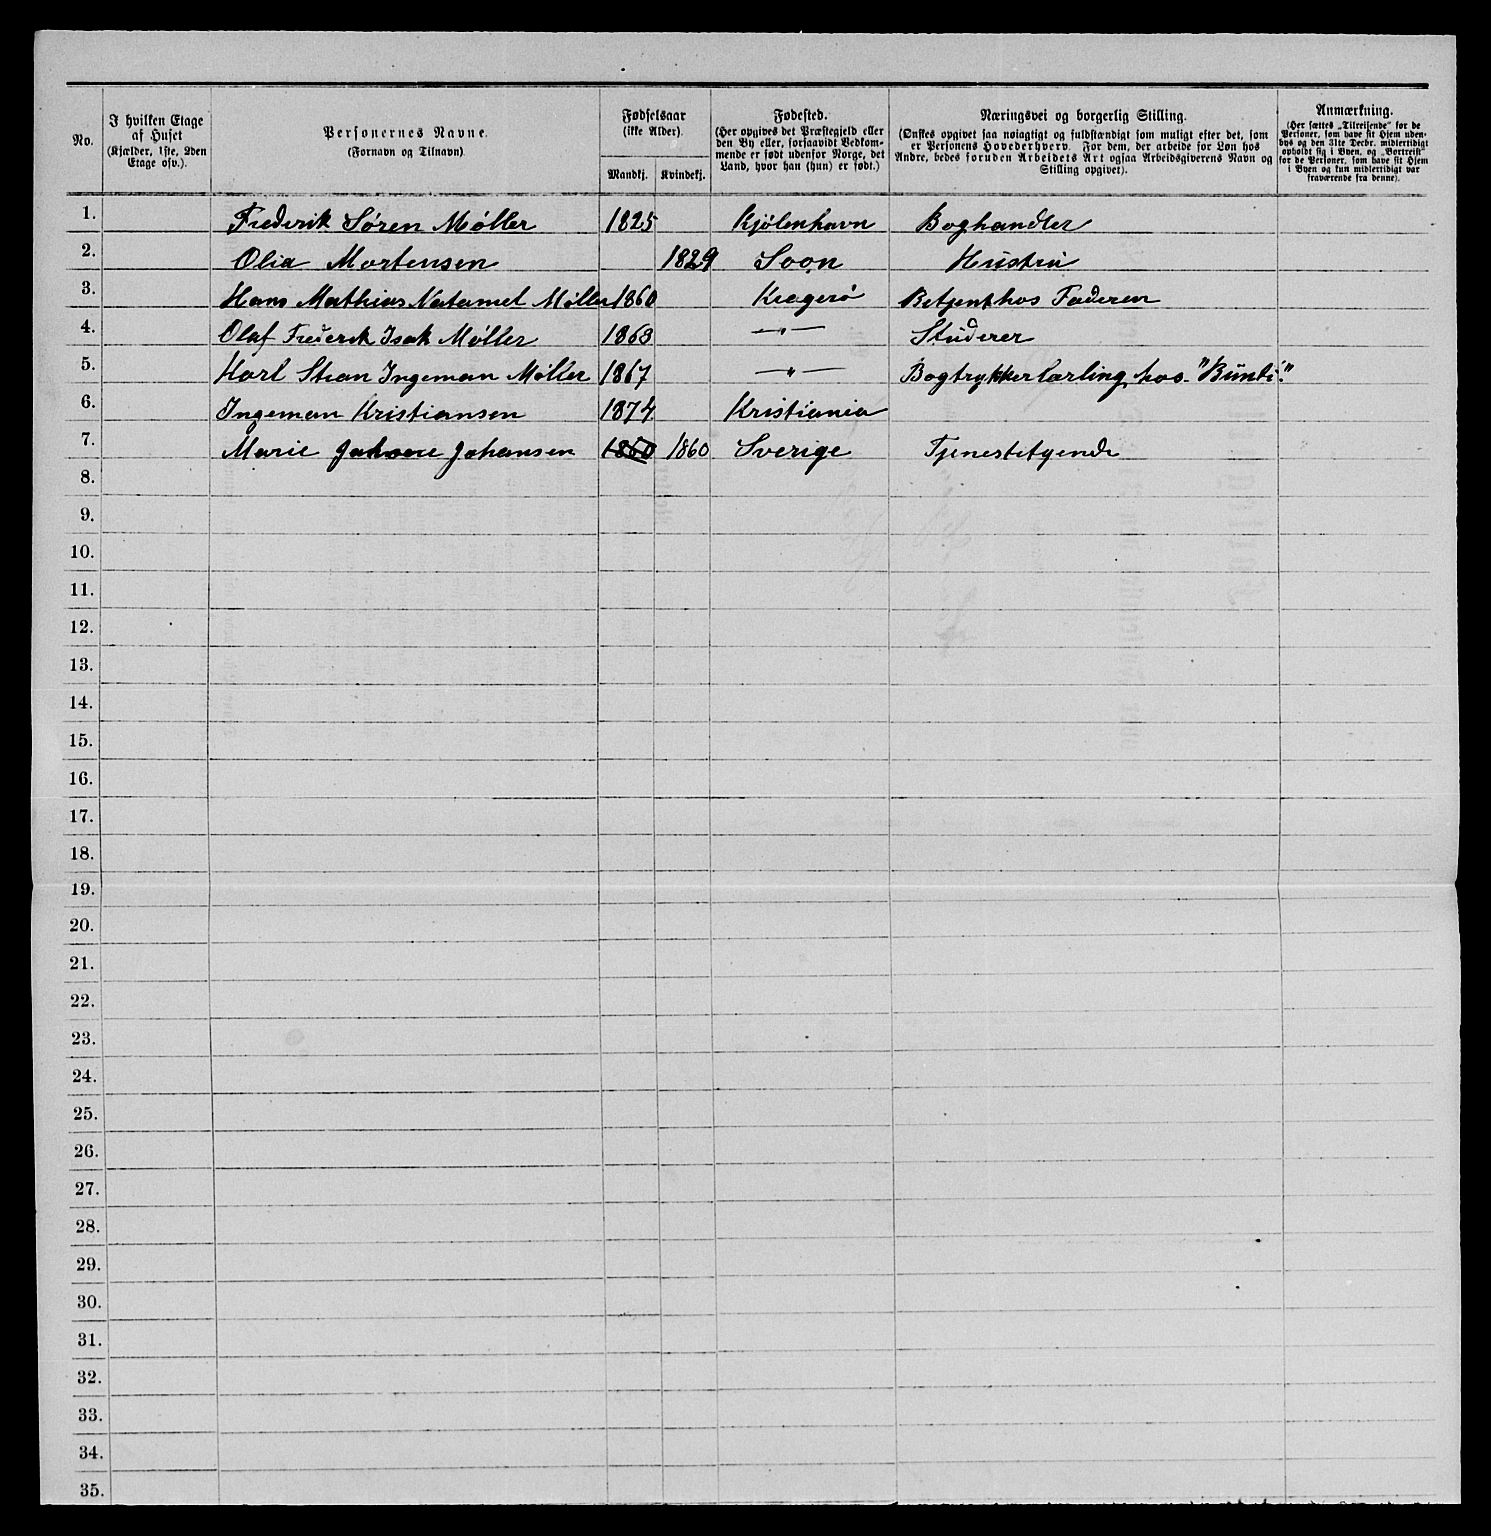 No. | I hvilken Etage af Huset (Kjælder, 1ste, 2den Etage osv.). | Personernes Navne. (Fornavn og Tilnavn) | Fødselsaar (ikke Alder). Mandkj. | Kvindekj. | Fødested. (Her opgives det Præstegjeld eller den By eller, forsaavidt Vedkommende er født udenfor Norge, det Land, hvor han (hun) er født.) | Næringsvei og borgerlig Stilling. (Ønskes opgivet saa nøiagtigt og fuldstændigt som muligt efter det, som er Personens Hovederhverv. For dem, der arbeide for Løn hos Andre, bedes foruden Arbeidets Art ogsaa Arbeidsgiverens Navn og Stilling opgivet). | Anmærkning. (Her sættes „Tilreisende" for de Personer, som have sit Hjem udenbys og den 31te Decbr. midlertidigt opholdt sig i Byen, og „Bortreist" for de Personer, som have sit Hjem i Byen og kun midlertidigt var fraværende fra denne).
1. Frederik Søren Møller 1825 Kjøbenhavn Boghandler
2. Olia Mortensen 1829 Soon Hustru
3. Hans Mathias Natamel Møller 1860 Kragerö Betjent hos Faderen
4. Olaf Frederik Isak Møller 1863 —"— Studerer
5. Karl Stian Ingeman Møller 1867 —"— Bogtrykkerlærling hos "Bundi".
6. Ingeman Kristiansen 1874 Kristiania
7. Marie Johansen 1860 1860 Sverige Tjenestetyende
8.
9.
10.
11.
12.
13.
14.
15.
16.
17.
18.
19.
20.
21.
22.
23.
24.
25.
26.
27.
28.
29.
30.
31.
32.
33.
34.
35.